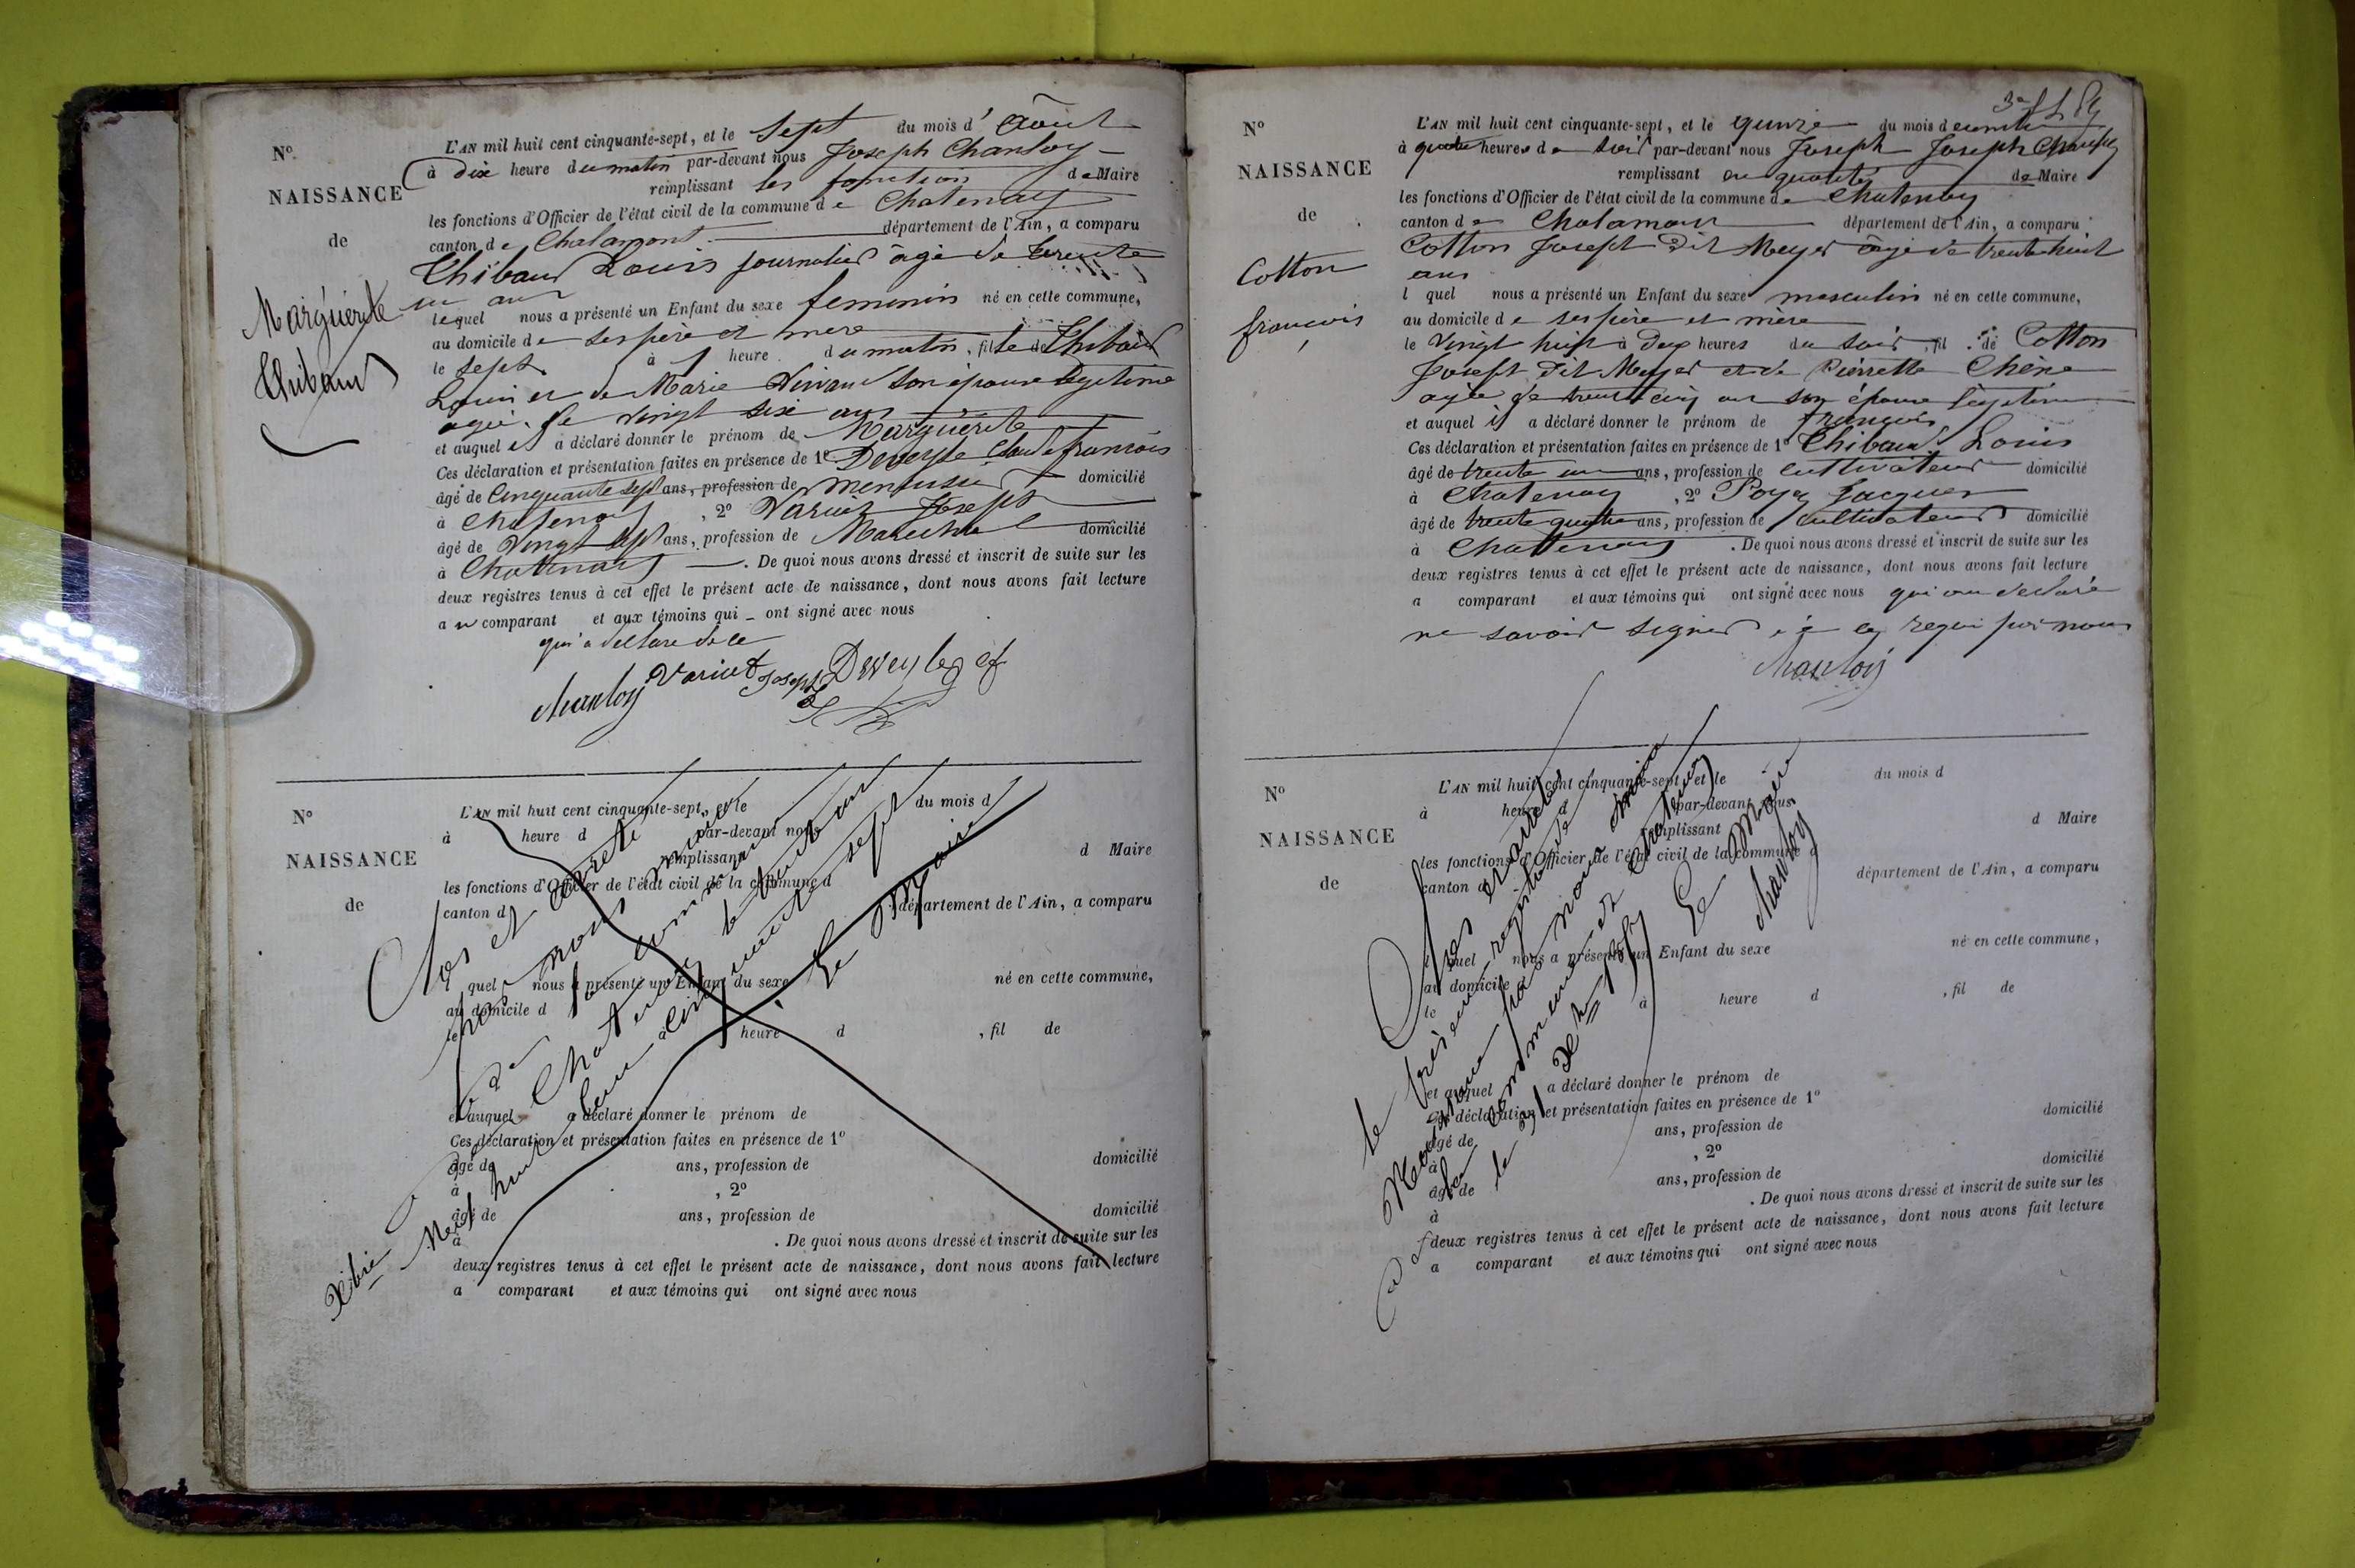 N°
NAISSANCE
de
Marguérite
Thibaud
L'AN mil huit cent cinquante-sept, et le Sept du mois d' Août
à Dix heure du matin par-devant nous Joseph Chanloy
remplissant les fonction de Maire
les fonctions d'Officier de l'état civil de la commune de Chatenay
canton de Chalamont département de l'Ain, a comparu
Thibaud Louis journalier âgé de trente
un ans
lequel nous a présenté un Enfant du sexe feminin né en cette commune,
au domicile de ses père et mere
le sept à 1 heure du matin, fille de Thibaud
Louis et de Marie son épouse légitime
agée de vingt six ans
et auquel il a déclaré donner le prénom de Marguérite
Ces déclaration et présentation faites en présence de 1° Deveyle Claude françois
âgé de Cinquante sept ans, profession de menusier domicilié
à Chatenay, 2° Variot Joseph
âgé de Vingt sept ans, profession de Marechal domicilié
à Chatenay. De quoi nous avons dressé et inscrit de suite sur les
deux registres tenus à cet effet le présent acte de naissance, dont nous avons fait lecture
au comparant et aux témoins qui ont signé avec nous
qui a
Chanloy Variot Joseph Deveyle cf
N°
NAISSANCE
de
L'AN mil huit cent cinquante-sept, et le du mois d
à heure d par-devant nous
remplissant d Maire
les fonctions d'Officier de l'état civil de la commune d
canton d département de l'Ain, a comparu
l quel nous a présenté un Enfant du sexe né en cette commune,
au domicile d
le à heure d , fil de
et auquel a déclaré donner le prénom de
Ces déclaration et présentation faites en présence de 1°
âgé de ans, profession de domicilié
à , 2°
âgé de ans, profession de domicilié
à . De quoi nous avons dressé et inscrit de suite sur les
deux registres tenus à cet effet le présent acte de naissance, dont nous avons fait lecture
a comparant et aux témoins qui ont signé avec nous
Clos et arreté
par nous maire
de la commune
de Chatenay le trente un
Xbre Mil huit cent cinquante sept
Le Maire
N°
NAISSANCE
de
Cotton
françois
L'AN mil huit cent cinquante-sept, et le quinze du mois d
à quatre heures de soir par-devant nous Joseph Joseph Chanloy
remplissant en qualité de Maire
les fonctions d'Officier de l'état civil de la commune de Chatenay
canton de Chalamon département de l'Ain, a comparu
Cotton Joseph Dit Meyer âgé de trente huit
ans
l quel nous a présenté un Enfant du sexe masculin né en cette commune,
au domicile de ses père et mère
le Vingt huit à Deux heures du soir, fil de Cotton
Joseph Dit Meyer et de Pierrette Chêne
agée de trente cinq ans son épouse légitime
et auquel il a déclaré donner le prénom de françois
Ces déclaration et présentation faites en présence de 1° Thibaud Louis
âgé de trente un ans, profession de cultivateur domicilié
à Chatenay, 2° Jacques
âgé de trente quatre ans, profession de cultivateur domicilié
à Chatenay. De quoi nous avons dressé et inscrit de suite sur les
deux registres tenus à cet effet le présent acte de naissance, dont nous avons fait lecture
a comparant et aux témoins qui ont signé avec nous qui ont declaré
ne savoir signer requi par nous
Chanloy
N°
NAISSANCE
de
L'AN mil huit cent cinquante-sept, et le du mois d
à heure d par-devant nous
remplissant d Maire
les fonctions d'Officier de l'état civil de la commune d
canton d département de l'Ain, a comparu
l quel nous a présenté un Enfant du sexe né en cette commune,
au domicile d
le à heure d , fil de
et auquel a déclaré donner le prénom de
Ces déclaration et présentation faites en présence de 1°
âgé de ans, profession de domicilié
à , 2°
âgé de ans, profession de domicilié
à . De quoi nous avons dressé et inscrit de suite sur les
deux registres tenus à cet effet le présent acte de naissance, dont nous avons fait lecture
a comparant et aux témoins qui ont signé avec nous
Clos et arreté
le présent registre
par nous maire
de la commune de Chatenay
le 31 Xbre 1857
Le Maire
Chanloy